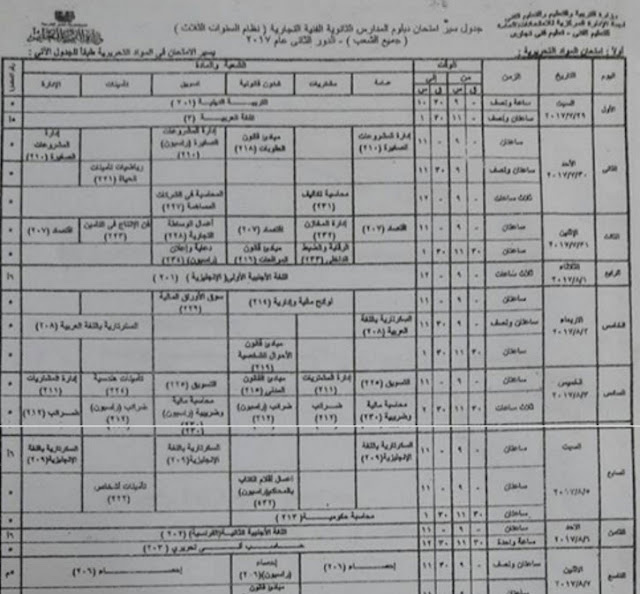 وزارة التربية والتعليم والتعليم الفنى
الإدارة المركزية للامتحانات
التعليم الفنى - تعليم فنى تجارى
جدول سير امتحان دبلوم المدارس الثانوية الفنية التجارية ( نظام السنوات الثلاث )
( جميع الشعب ) - الدور الثانى عام ٢٠١٧
أولا: امتحان المواد التحريرية :
يسير الامتحان فى المواد التحريرية طبقا للجدول الآتى:
اليوم التاريخ الزمن الوقت الشعبة والمادة
من إلى عامة مشتريات شئون قانونية تسويق تأمينات الإدارة
ق س ق س
الأول السبت ٢٠١٧/٧/٢٩ ساعة ونصف - ٩ ٣٠ ١٠ التربية الدينية (٢٠١)
ساعتان ونصف - ١١ ٣٠ ١ اللغة العربية (٢)
الثانى الأحد ٢٠١٧/٧/٣٠ ساعتان - ٩ - ١١ إدارة المشروعات الصغيرة (٢١٠) مبادئ قانون العقوبات (٢١٨) إدارة المشروعات الصغيرة (راسبون) (٢١٠) إدارة المشروعات الصغيرة (٢١٠)
ساعتان ونصف - ٩ ٣٠ ١١ رياضيات تأمينات الحياة (٢٢١)
ثلاث ساعات - ٩ - ١٢ محاسبة تكاليف (٢٣١) المحاسبة فى الشركات المساهمة (٢٢٧)
الثالث الإثنين ٢٠١٧/٧/٣١ ساعتان - ٩ - ١١ اقتصاد (٢٠٧) إدارة المخازن (٢٣٢) اقتصاد (٢٠٧) أعمال الوساطة التجارية (٢٢٨) فن الإنتاج فى التأمين (٢٢٣) اقتصاد (٢٠٧)
ساعتان ٣٠ ١١ ٣٠ ١ الرقابة والضبط الداخلى (٢٣٣) مبادئ قانون المرافعات (٢١٦) دعاية وإعلان (راسبون) (٢٣٤)
الرابع الثلاثاء ٢٠١٧/٨/١ ثلاث ساعات - ٩ - ١٢ اللغة الأجنبية الأولى ( الإنجليزية ) (٢٠١)
الخامس الأربعاء ٢٠١٧/٨/٢ ساعتان - ٩ - ١١ لوائح مالية وإدارية (٢١٤) سوق الأوراق المالية (٢٢٩)
ساعتان ونصف - ٩ ٣٠ ١١ السكرتارية باللغة العربية (٢٠٨) السكرتارية باللغة العربية (٢٠٨)
ساعتان ٣٠ ١١ ٣٠ ١ مبادئ قانون الأحوال الشخصية (٢١٩)
السادس الخميس ٢٠١٧/٨/٣ ساعتان - ٩ - ١١ التسويق (٢٢٥) إدارة المشتريات (٢١١) مبادئ القانون المدنى (٢١٥) التسويق (٢٢٥) تأمينات هندسية (٢٢٤) إدارة المشتريات (٢١١)
ثلاث ساعات ٣٠ ١١ ٣٠ ٢ محاسبة مالية وضريبية (٢٣٠) ضرائب (٢١٢) ضرائب (راسبون) (٢١٢) محاسبة مالية وضريبية (راسبون) (٢٣٠) ضرائب (راسبون) (٢١٢) ضرائب (٢١٢)
السابع السبت ٢٠١٧/٨/٥ ساعتان - ٩ - ١١ السكرتارية باللغة الإنجليزية (٢٠٩) السكرتارية باللغة الإنجليزية (٢٠٩) السكرتارية باللغة الإنجليزية (٢٠٩)
ساعتان - ٩ - ١١ أعمال أقلام الكتاب بالمحاكم (راسبون) تأمينات أشخاص (٢٢٢)
ساعتان ٣٠ ١١ ٣٠ ١ محاسبة حكومية (٢١٣)
الثامن الأحد ٢٠١٧/٨/٦ ساعتان - ٩ - ١١ اللغة الأجنبية الثانية (الفرنسية) (٢٠٢)
ساعة واحدة ٣٠ ١١ ٣٠ ١٢ حاسب آلى تحريرى (٢٠٣)
التاسع الإثنين ٢٠١٧/٨/٧ ساعتان ونصف - ٩ ٣٠ ١١ إحصاء (٢٠٦) إحصاء (راسبون) (٢٠٦) إحصاء (٢٠٦)
ساعتان - ٩ - ١١ مبادئ قانون